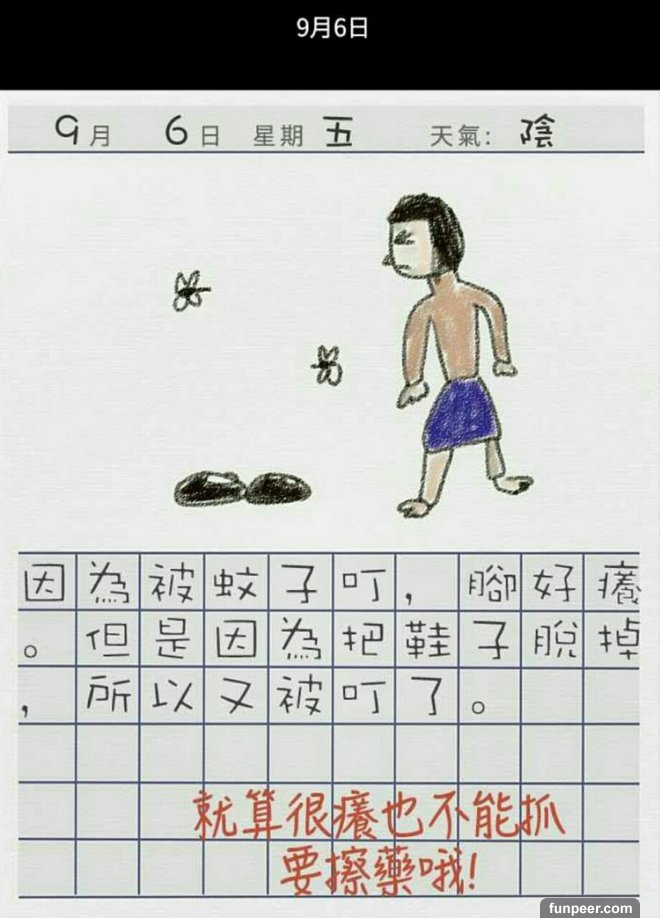 9月6日
9月 6日 星期五 天氣: 陰
因為被蚊子叮，腳好癢
。但是因為把鞋子脫掉
，所以又被叮了。
就算很癢也不能抓
要擦藥哦!
funpeer.com